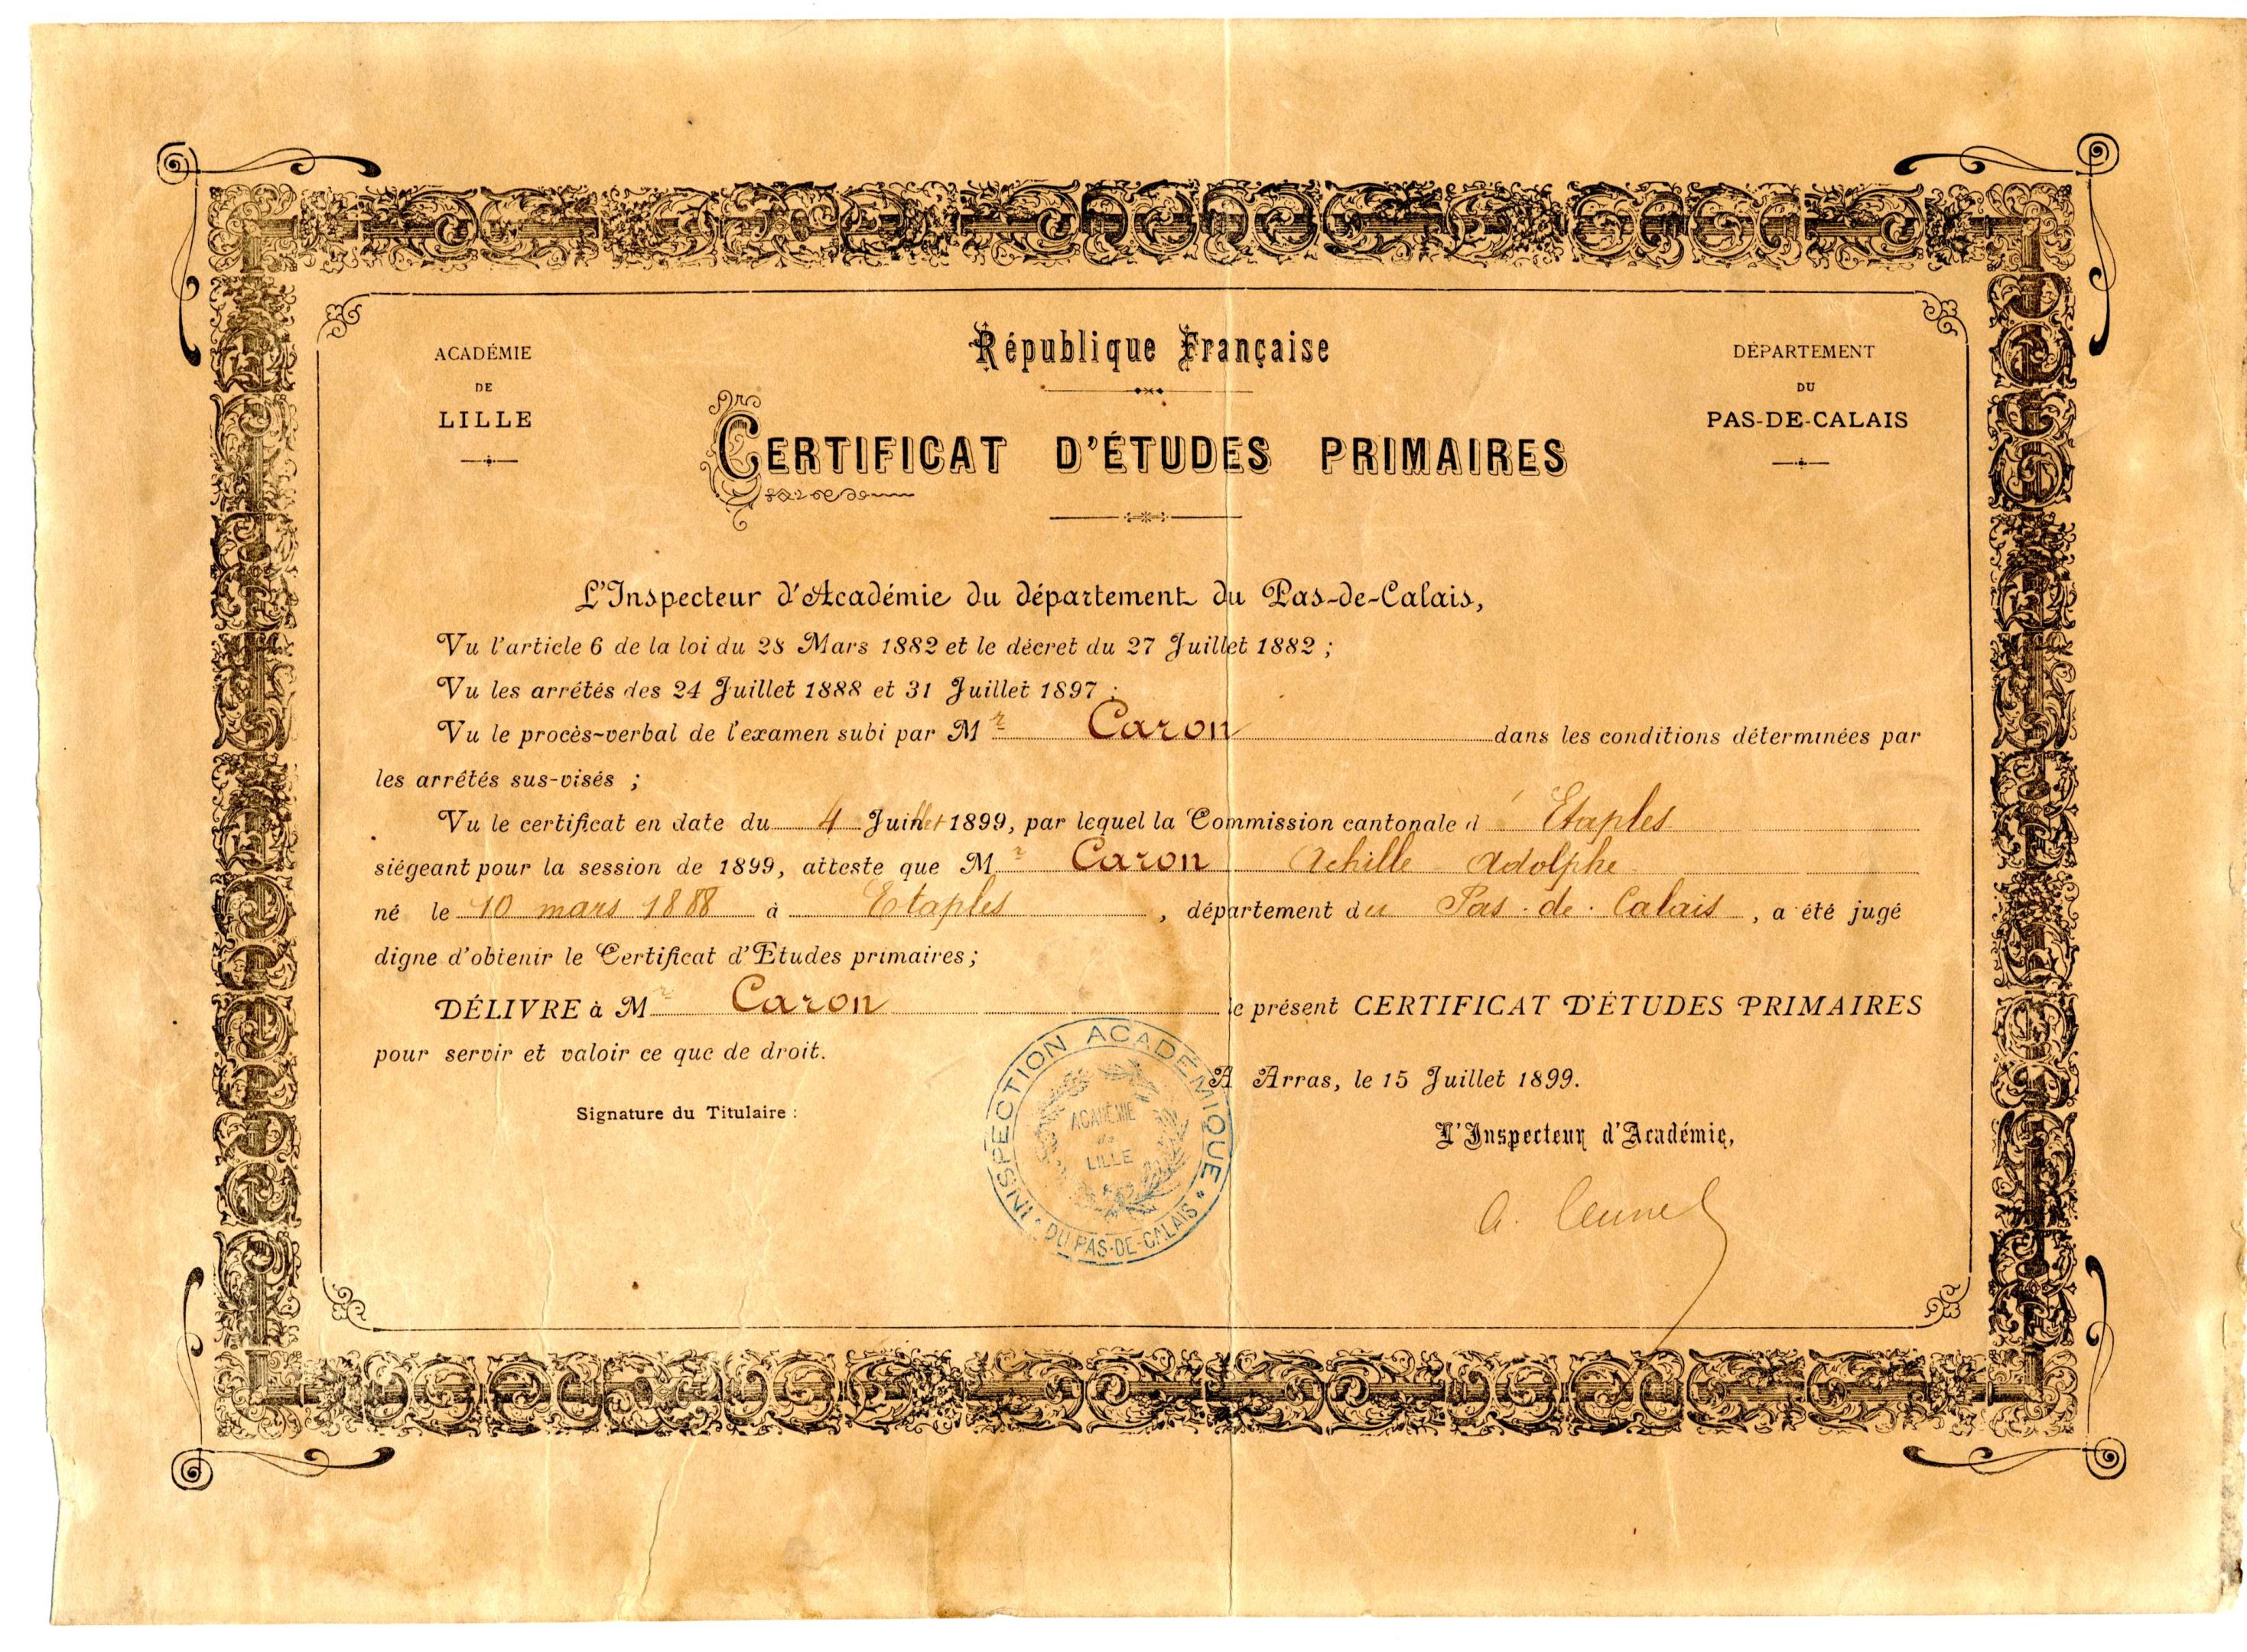 ACADÉMIE
DE
LILLE
République Française
DÉPARTEMENT
DU
PAS-DE-CALAIS
CERTIFICAT D'ÉTUDES PRIMAIRES
L'Inspecteur d'Académie du département du Pas-de-Calais,
Vu l'article 6 de la loi du 28 Mars 1882 et le décret du 27 Juillet 1882 ;
Vu les arrêtés des 24 Juillet 1888 et 31 Juillet 1897 ;
Vu le procès-verbal de l'examen subi par Mr Caron dans les conditions déterminées par
les arrêtés sus-visés ;
Vu le certificat en date du 4 Juillet 1899, par lequel la Commission cantonale d' Etaples
siégeant pour la session de 1899, atteste que Mr Caron Achille Adolphe
né le 10 mars 1888 à Etaples, département du Pas-de-Calais, a été jugé
digne d'obtenir le Certificat d'Etudes primaires;
DÉLIVRE à Mr Caron le présent CERTIFICAT D'ÉTUDES PRIMAIRES
pour servir et valoir ce que de droit.
A Arras, le 15 Juillet 1899.
Signature du Titulaire :
L'Inspecteur d'Académie,
INSPECTION ACADÉMIQUE
DU PAS-DE-CALAIS
ACADÉMIE
de
LILLE